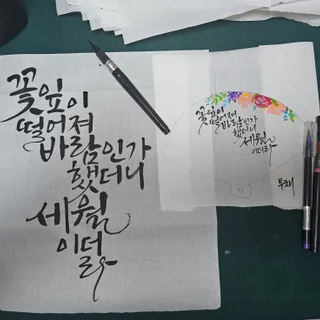 꽃잎이
떨어져
바람인가
했더니
세월
이더
라
꽃잎이
떨어져
바람인가
했더니
세월
이더라
부채